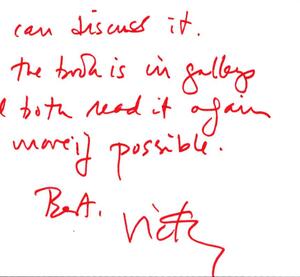 can discuss it.
the book is in galleys
both read it again
more if possible.
Best.